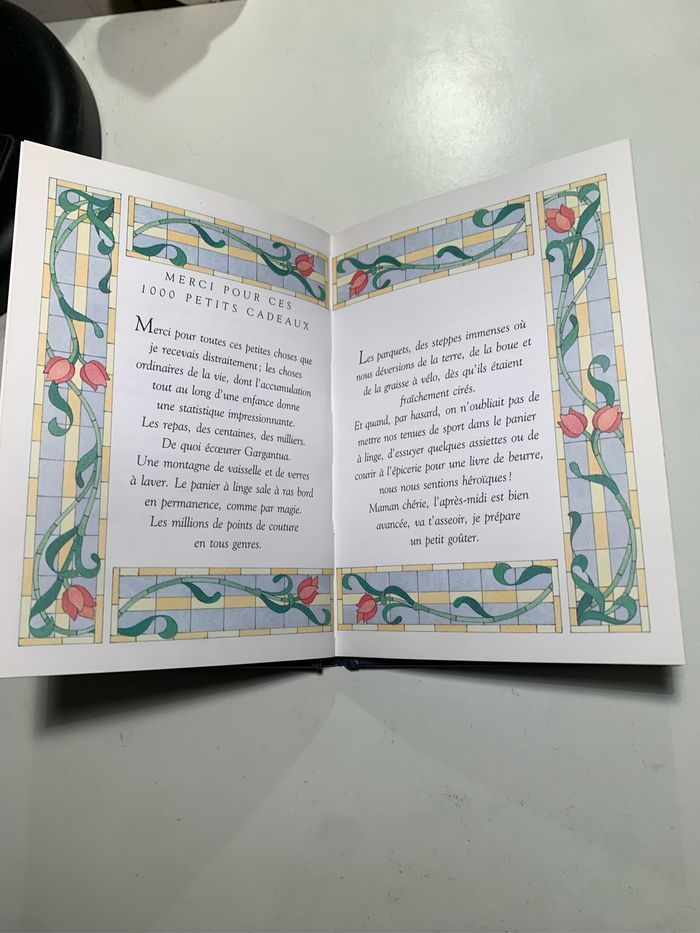 MERCI POUR CES
1000 PETITS CADEAUX
Merci pour toutes ces petites choses que
je recevais distraitement ; les choses
ordinaires de la vie, dont l'accumulation
tout au long d'une enfance donne
une statistique impressionnante.
Les repas, des centaines, des milliers.
De quoi écœurer Gargantua.
Une montagne de vaisselle et de verres
à laver. Le panier à linge sale à ras bord
en permanence, comme par magie.
Les millions de points de couture
en tous genres.
Les parquets, des steppes immenses où
nous déversions de la terre, de la boue et
de la graisse à vélo, dès qu'ils étaient
fraîchement cirés.
Et quand, par hasard, on n'oubliait pas de
mettre nos tenues de sport dans le panier
à linge, d'essuyer quelques assiettes ou de
courir à l'épicerie pour une livre de beurre,
nous nous sentions héroïques !
Maman chérie, l'après-midi est bien
avancée, va t'asseoir, je prépare
un petit goûter.